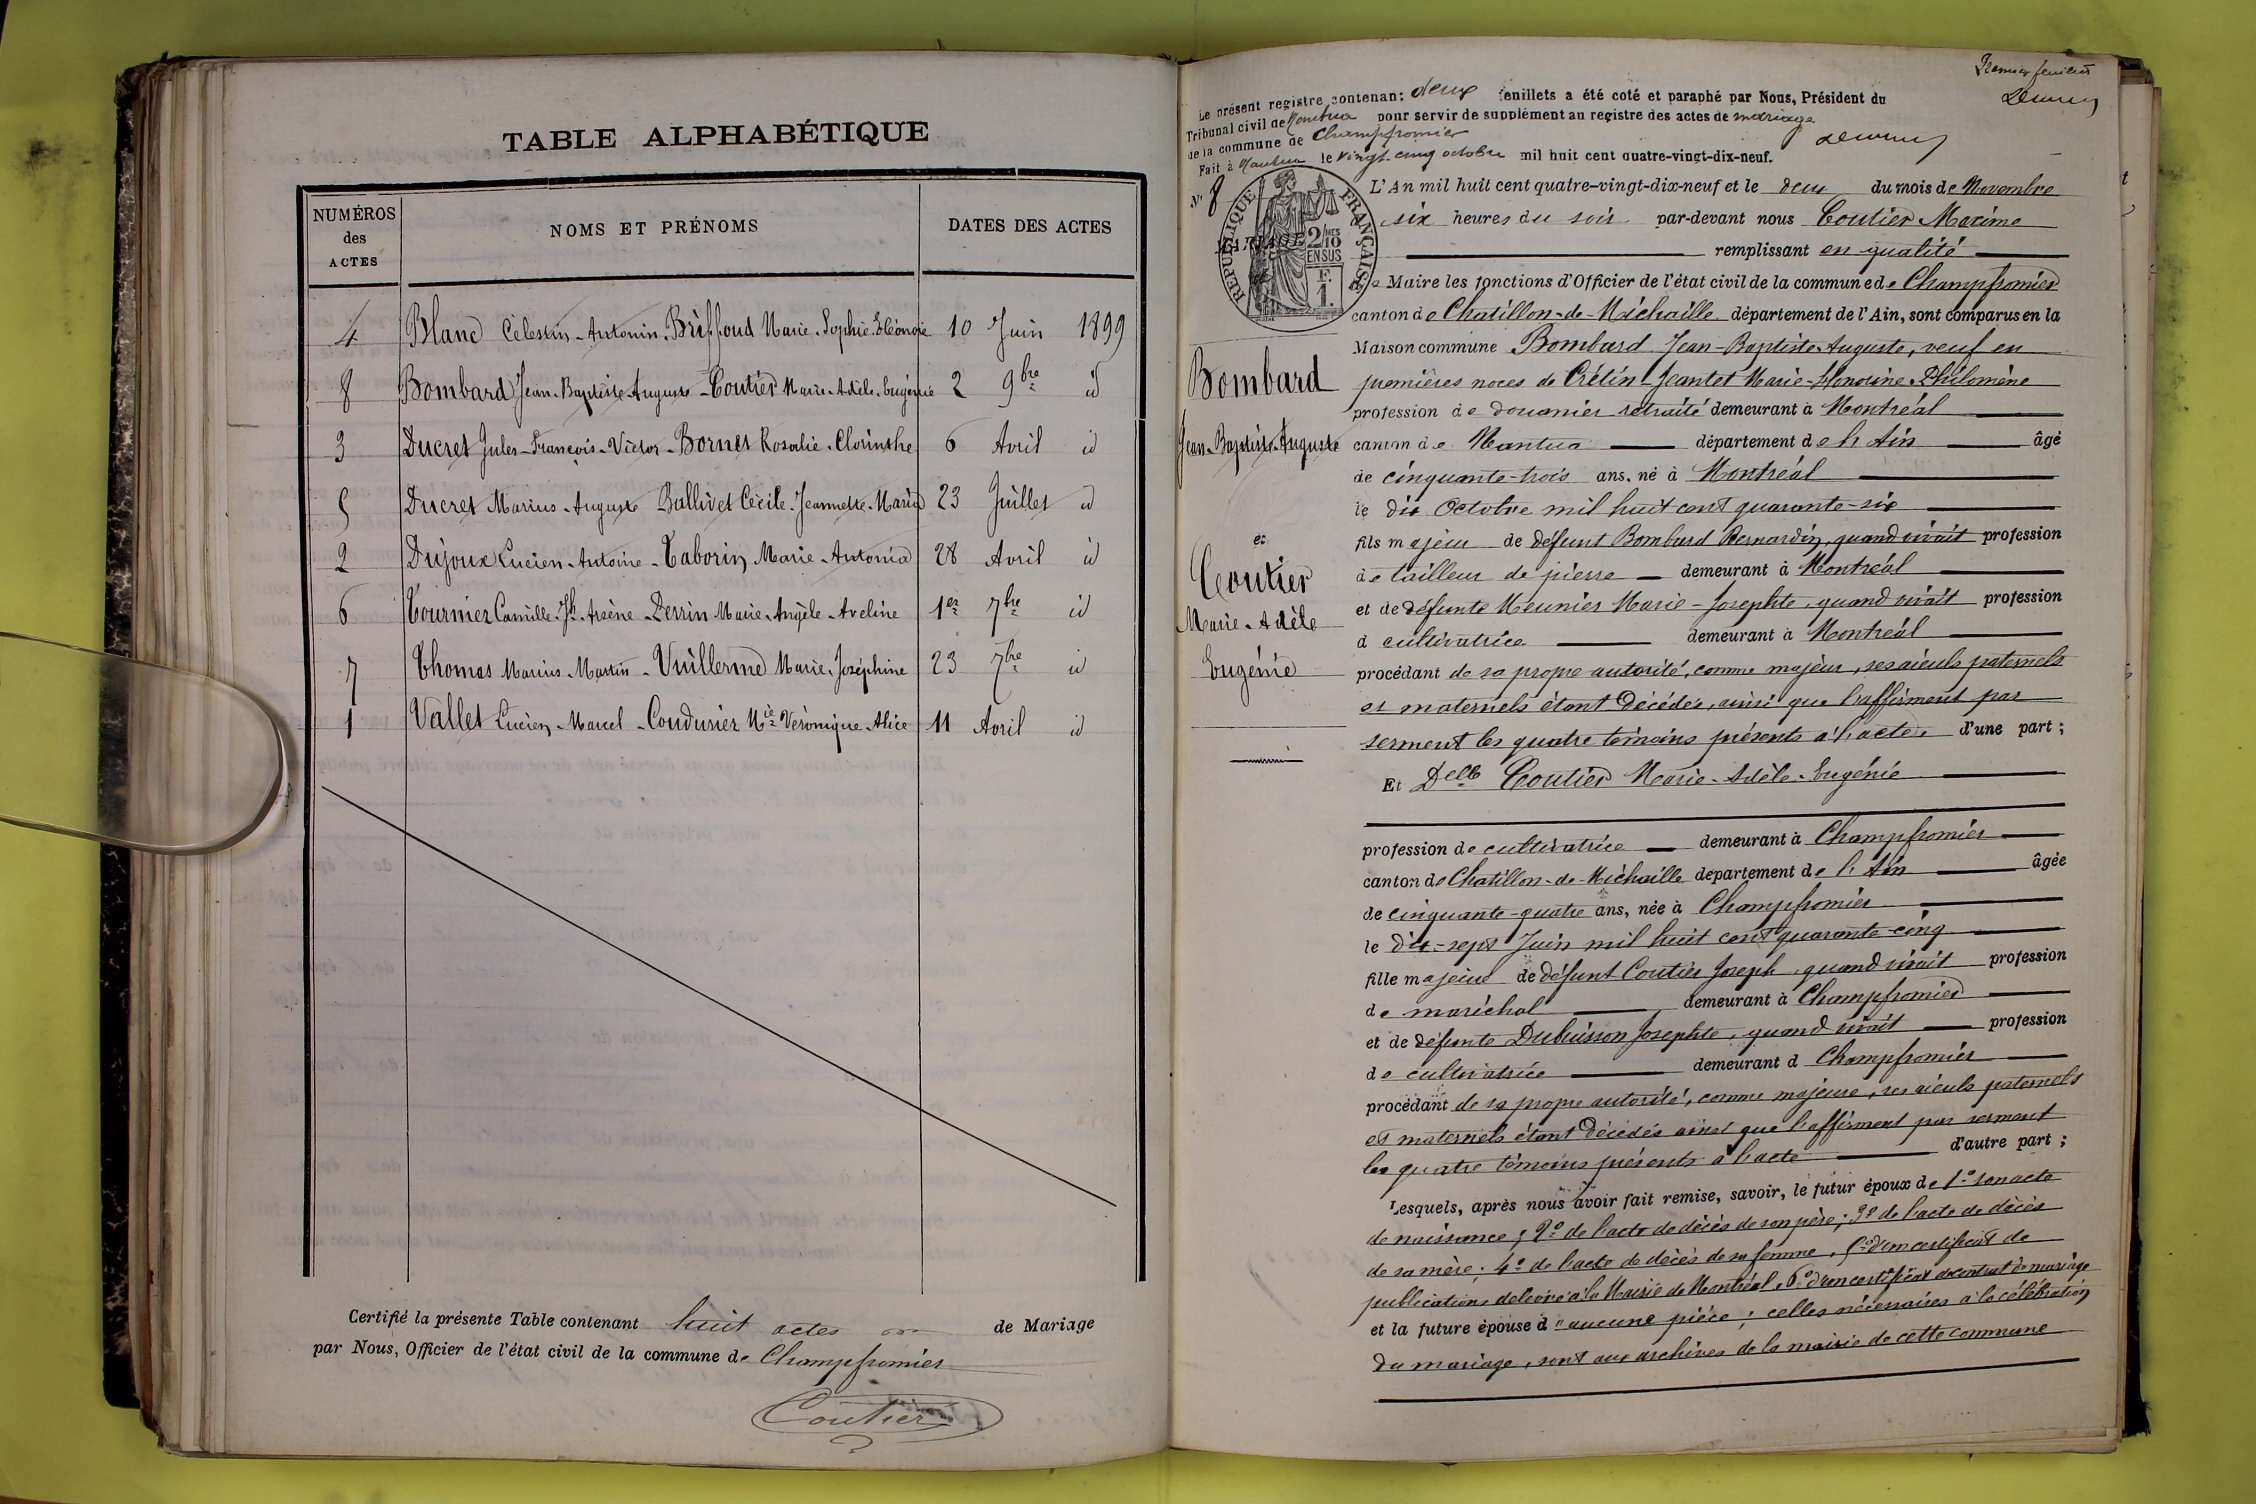 TABLE ALPHABÉTIQUE
NUMÉROS
des
ACTES
NOMS ET PRÉNOMS
DATES DES ACTES
4 Blanc Célestin-Antonin. Briffoud Marie-Sophie-Eléonore 10 Juin 1899
8 Bombard Jean-Baptiste-Auguste - Coutier Marie-Adèle-Eugénie 2 9bre id
3 Ducret Jules-François-Victor - Bornet Rosalie-Clorinthe 6 Avril id
5 Ducret Marius-Auguste Ballivet Cécile-Jeannette-Maria 23 Juillet id
2 Dujoux Lucien-Antoine - Taborin Marie-Antonia 28 Avril id
6 Tournier Camille-Jh-Arsène - Perrin Marie-Angèle-Aveline 1er 7bre id
7 Thomas Marius-Martin - Vuillerme Marie-Joséphine 23 7bre id
1 Vallet Lucien-Marcel - Coudurier Mie Véronique-Alice 11 Avril id
Certifié la présente Table contenant huit actes de Mariage
par Nous, Officier de l'état civil de la commune de Champfromier
Coutier
Premier feuillet
Le présent registre contenant deux feuillets a été coté et paraphé par Nous, Président du
Tribunal civil de Nantua pour servir de supplément au registre des actes de mariage
de la commune de Champfromier
Fait à Nantua le vingt-cinq octobre mil huit cent quatre-vingt-dix-neuf.
N° 8
MARIAGE
RÉPUBLIQUE FRANÇAISE
2/10 MES
EN SUS
F.
1.
L'An mil huit cent quatre-vingt-dix-neuf et le deux du mois de Novembre
six heures du soir par-devant nous Coutier Maxime
remplissant en qualité
de Maire les fonctions d'Officier de l'état civil de la commune de Champfromier
canton de Chatillon-de-Michaille département de l'Ain, sont comparus en la
Maison commune Bombard Jean-Baptiste-Auguste, veuf en
premières noces de Crétin-Jeantet Marie-Honorine-Philomène
profession de douanier retraité demeurant à Montréal
canton de Nantua département de l'Ain âgé
de cinquante-trois ans, né à Montréal
le dix Octobre mil huit cent quarante-six
fils majeur de défunt Bombard Bernardin, quand vivait profession
de tailleur de pierre demeurant à Montréal
et de défunte Meunier Marie-Josephte, quand vivait profession
de cultivatrice demeurant à Montréal
procédant de sa propre autorité, comme majeur, ses aïeuls paternels
et maternels étant décédés, ainsi que l'affirment par
serment les quatre témoins présents à l'acte, d'une part;
Bombard
Jean-Baptiste-Auguste
et
Coutier
Marie-Adèle
Eugénie
Et Delle Coutier Marie-Adèle-Eugénie
profession de cultivatrice demeurant à Champfromier
canton de Chatillon-de-Michaille département de l'Ain âgée
de cinquante-quatre ans, née à Champfromier
le dix-sept Juin mil huit cent quarante-cinq
fille majeure de défunt Coutier Joseph, quand vivait profession
de maréchal demeurant à Champfromier
et de défunte Dubuisson Josephte, quand vivait profession
de cultivatrice demeurant à Champfromier
procédant de sa propre autorité, comme majeure, ses aïeuls paternels
et maternels étant décédés ainsi que l'affirment par serment
les quatre témoins présents à l'acte d'autre part;
Lesquels, après nous avoir fait remise, savoir, le futur époux de 1° son acte
de naissance; 2° de l'acte de décès de son père; 3° de l'acte de décès
de sa mère; 4° de l'acte de décès de sa femme, 5° d'un certificat de
publications délivré à la Mairie de Montréal, 6° d'un certificat de contrat de mariage
et la future épouse d'aucune pièce; celles nécessaires à la célébration
du mariage, sont aux archives de la mairie de cette commune